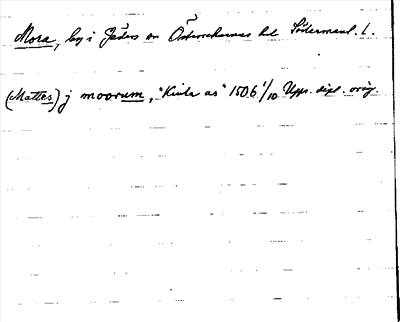 Mora, by i Jäders sn Österrekarnes hd Södermanl. l.
(Mattes) j moorum, "Kinla as" 1506 1/10 Upps. dipl. orig.